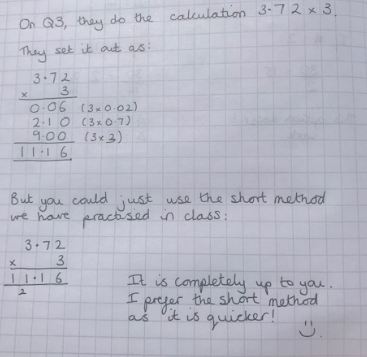 On Q3, they do the calculation 3·72 × 3.
They set it out as:
3·72
× 3
0·06 (3×0·02)
2·10 (3×0·7)
9·00 (3×3)
11·16
But you could just use the short method
we have practised in class:
3·72
× 3
11·16
2
It is completely up to you.
I prefer the short method
as it is quicker! :)